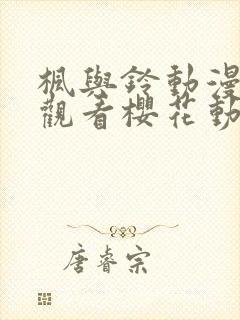 楓與鈴動漫
觀看櫻花動
唐睿宗